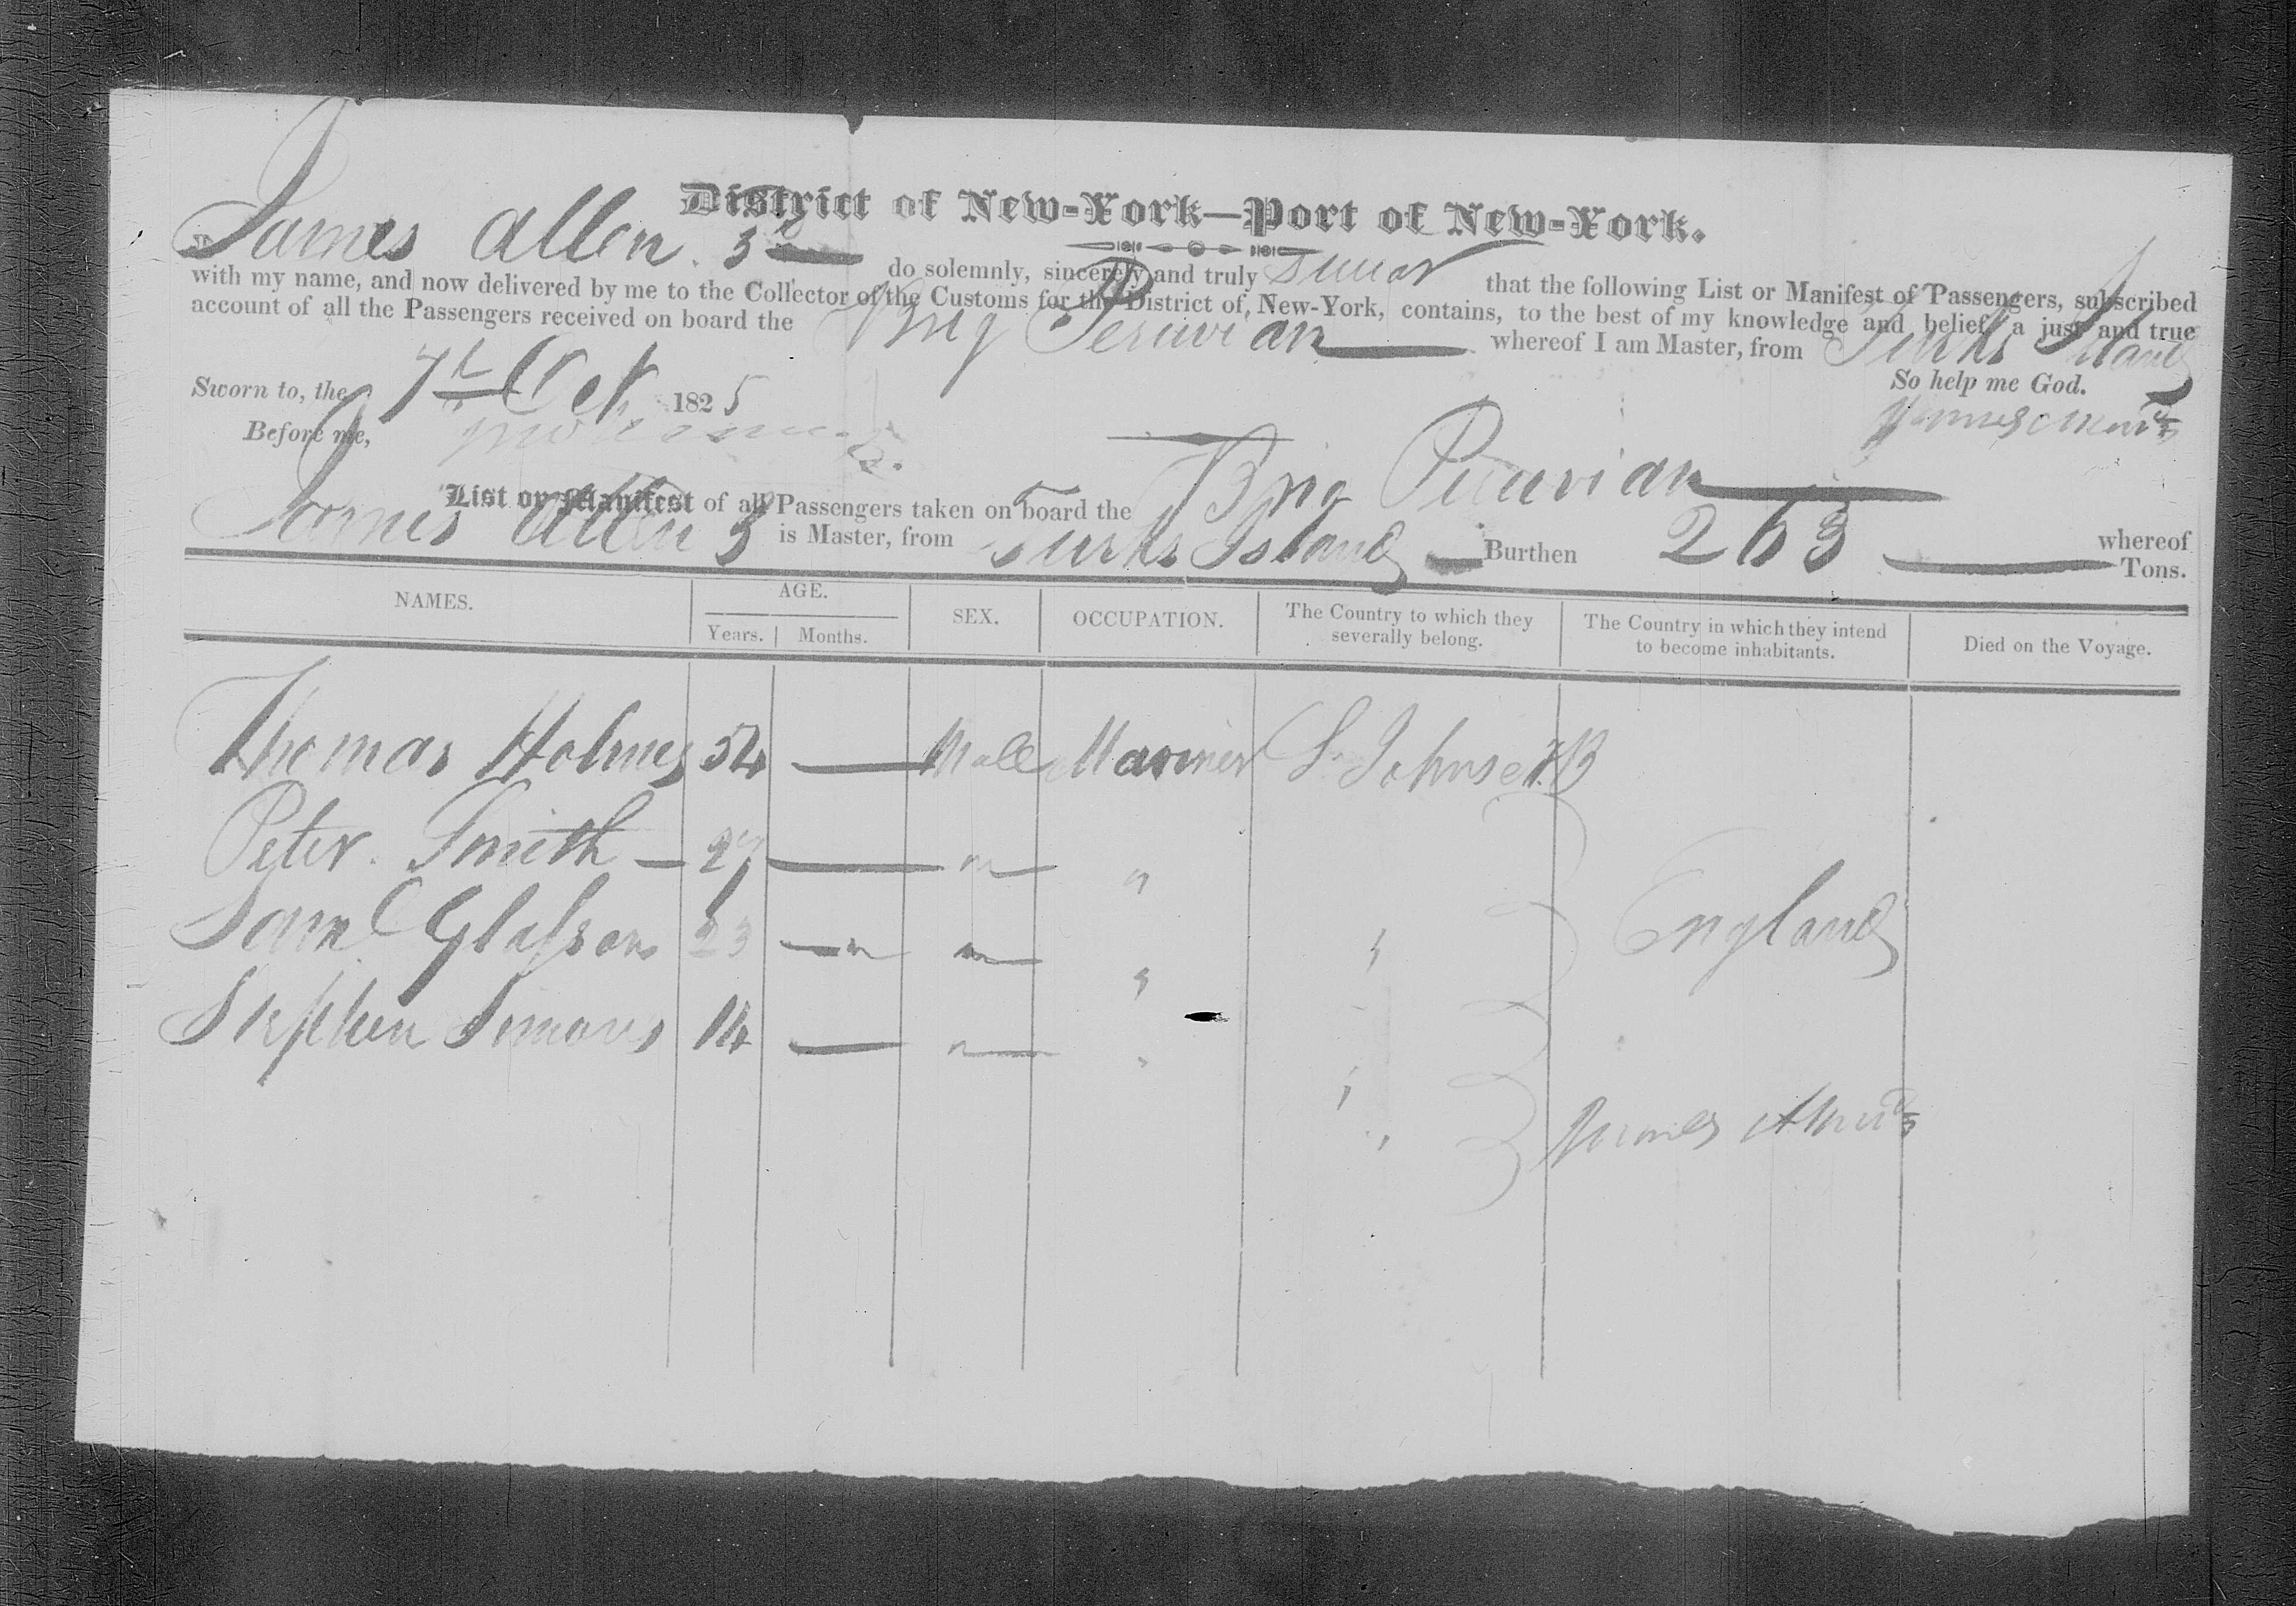 District of New-York—Port of New-York.
I, James Allen 3d do solemnly, sincerely and truly swear that the following List or Manifest of Passengers, subscribed
with my name, and now delivered by me to the Collector of the Customs for the District of New-York, contains, to the best of my knowledge and belief, a just and true
account of all the Passengers received on board the Brig Peruvian whereof I am Master, from Turks Island
Sworn to, the 7th Oct 1825 So help me God.
Before me, James Allen 3d
List or Manifest of all Passengers taken on board the Brig Peruvian whereof
James Allen 3d is Master, from Turks Island Burthen 263 Tons.
NAMES. AGE. SEX. OCCUPATION. The Country to which they severally belong. The Country in which they intend to become inhabitants. Died on the Voyage.
Years. Months.
Thomas Holmes 54 — Male Mariner St Johns NB
Peter Smith — " "
Saml Glasson 23 — " " " " England
Stephen Simons 14 — " " "
James Allen 3d